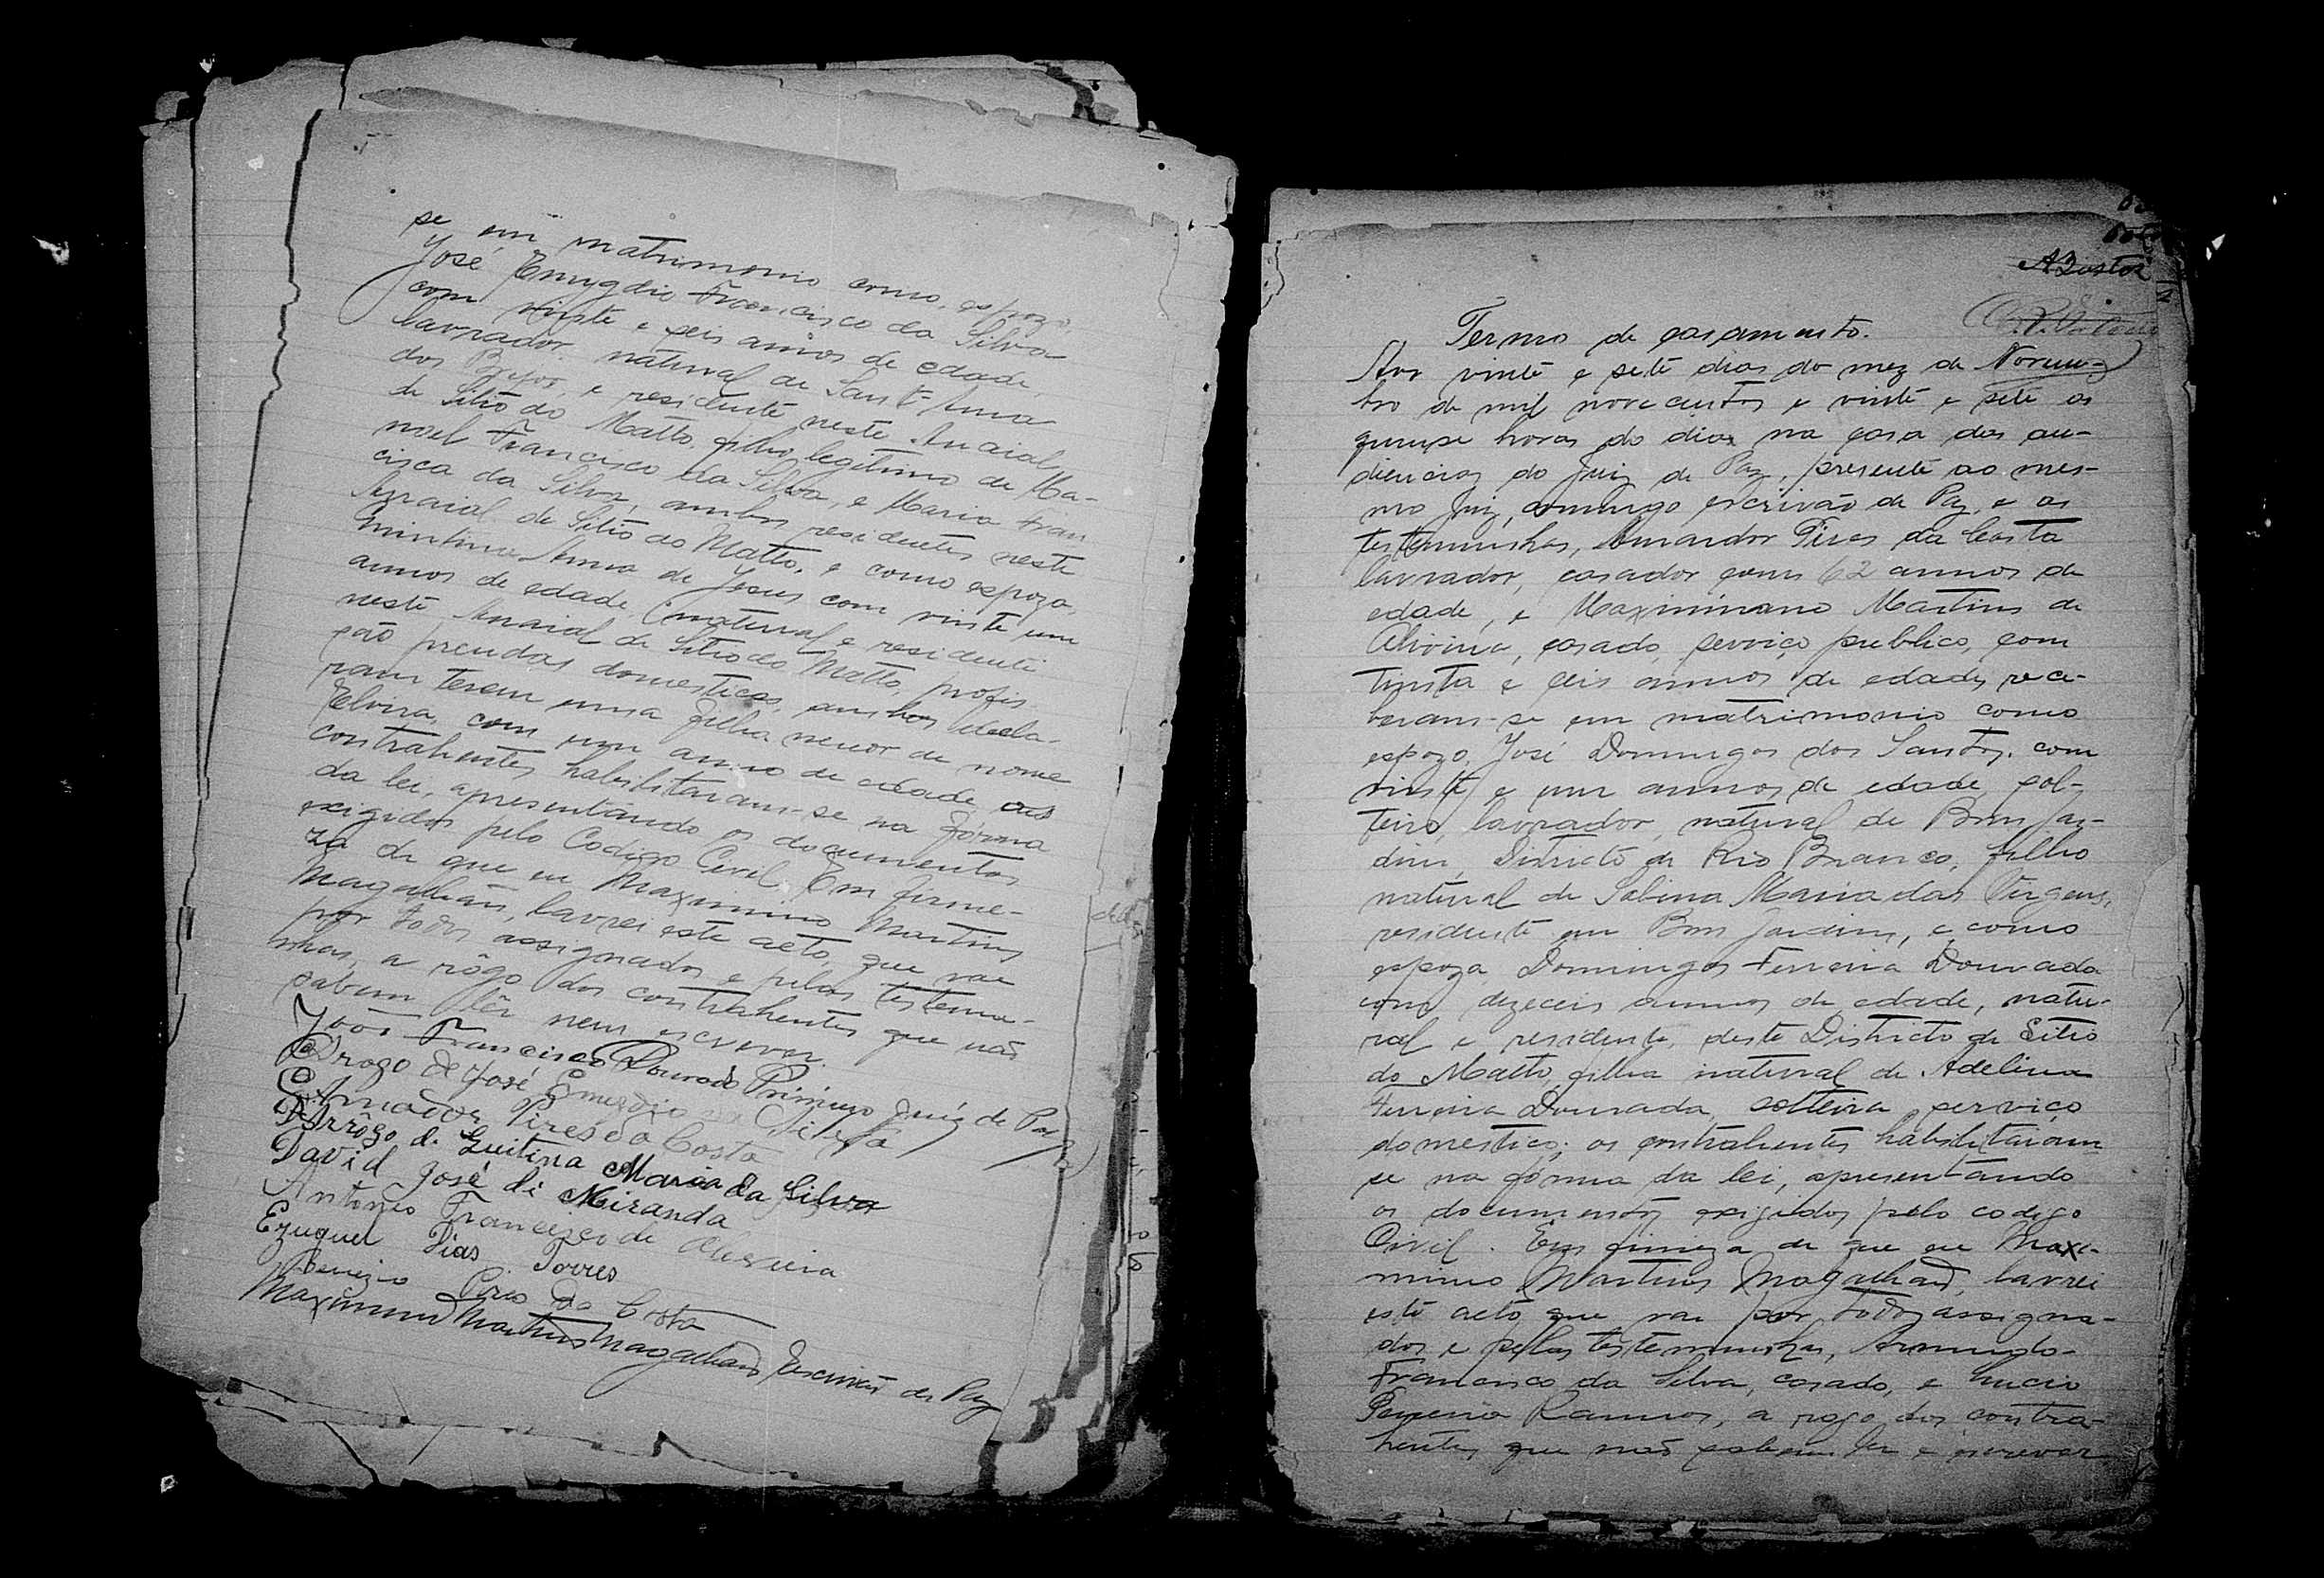 se em matrimonio como, espozo,
José Emygdio Francisco da Silva
com vinte e seis annos de edade,
lavrador, natural de Sant Anna
dos Brejos, e residente neste Arraial
de Sitio do Matto, filho legitimo de Ma-
noel Francisco da Silva, e Maria Fran
cisca da Silva, ambos residentes neste
Arraial de Sitio do Matto, e como espoza,
Anna de Jesus com vinte um
annos de edade, natural e residente
neste Arraial de Sitio do Matto, profis
são prendas domesticas, ambos decla-
ram terem uma filha menor de nome
Elvira, com um anno de edade os
contrahentes habilitaram-se na fórma
da lei, apresentando os documentos
exigidos pelo Codigo Civil. Em firme-
za de que eu Maximino Martins
Magalhães, lavrei este acto, que vae
por todos assignados e pelas testemu-
nhas, a rôgo dos contrahentes que não
sabem lêr nem escrever.
João Francisco Dourado Primeiro Juis de Paz
Arogo de José Emygdio da Silva
Amador Pires da Costa
Arrôgo de Maria da Silva
David José de Miranda
Antonio Francisco de Oliveira
Ezuquel Dias Torres
Pires da Costa
Maximino Martins Magalhães Escrivão de Paz
Termo de casamento.
Aos vinte e sete dias do mez de Novem-
bro de mil nove centos e vinte e sete as
quinse horas do dia na casa das au-
diencias do Juiz de Paz, presente ao mes-
mo Juiz, commigo escrivão de Paz, e as
testemunhas, Amador Pires da Costa
lavrador, casador com 62 annos de
edade, e Maximinano Martins de
Oliveira, casado, serviço publico, com
trinta e seis annos de edade, rece-
beram-se em matrimonio como
espozo, José Domingos dos Santos, com
vinte e um annos de edade, sol-
teiro, lavrador, natural de Bom Jar-
dim, Districto de Rio Branco, filho
natural de Sabina Maria das Virgens,
residente em Bom Jardim, e como
espoza Domingas Ferreira Dourada
com dezeceis annos de edade, natu-
ral e residente, deste Districto de Sitio
do Matto, filha natural de Adelina
Ferreira Dourada, solteira, serviço
domestico; os contrahentes habilitaram
se na fórma da lei, apresentando
os documentos exigidos pelo codigo
Civil. Em firmeza de que eu Maxi-
mino Martins Magalhães, lavrei
este acto que vai por todos assigna-
dos e pelas testemunhas, Armindo
Francisco da Silva, casado, e Lucio
Pereira Ramos, a rogo dos contra-
hentes que não sabem ler e escrever